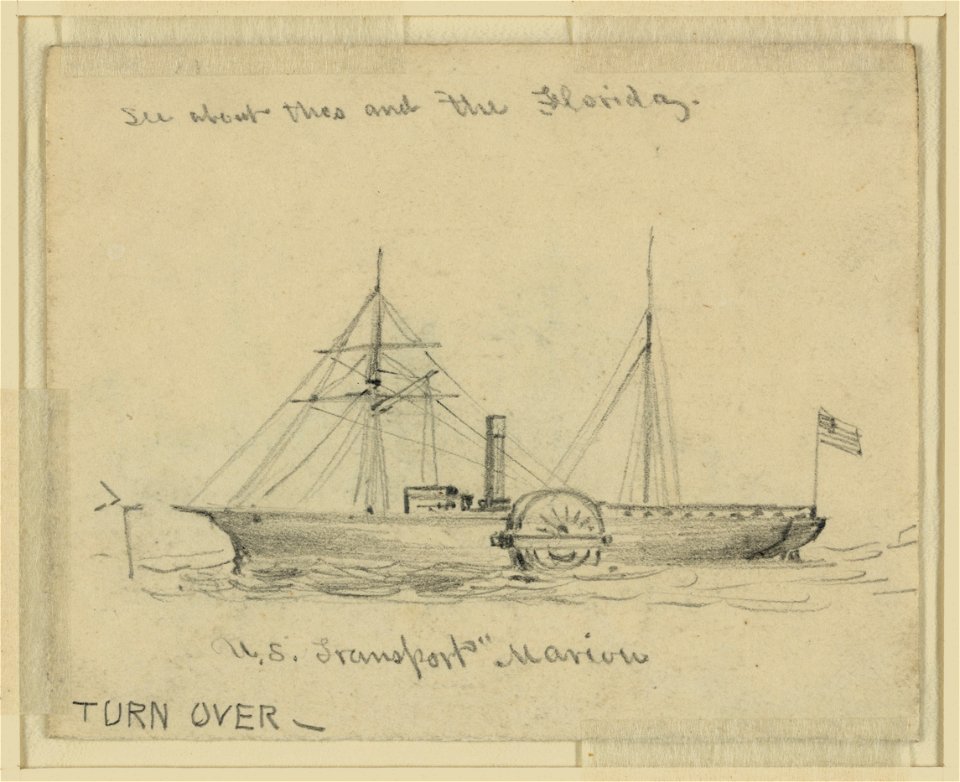 See about thes and the Florida.
U.S. Transport "Marion
TURN OVER —